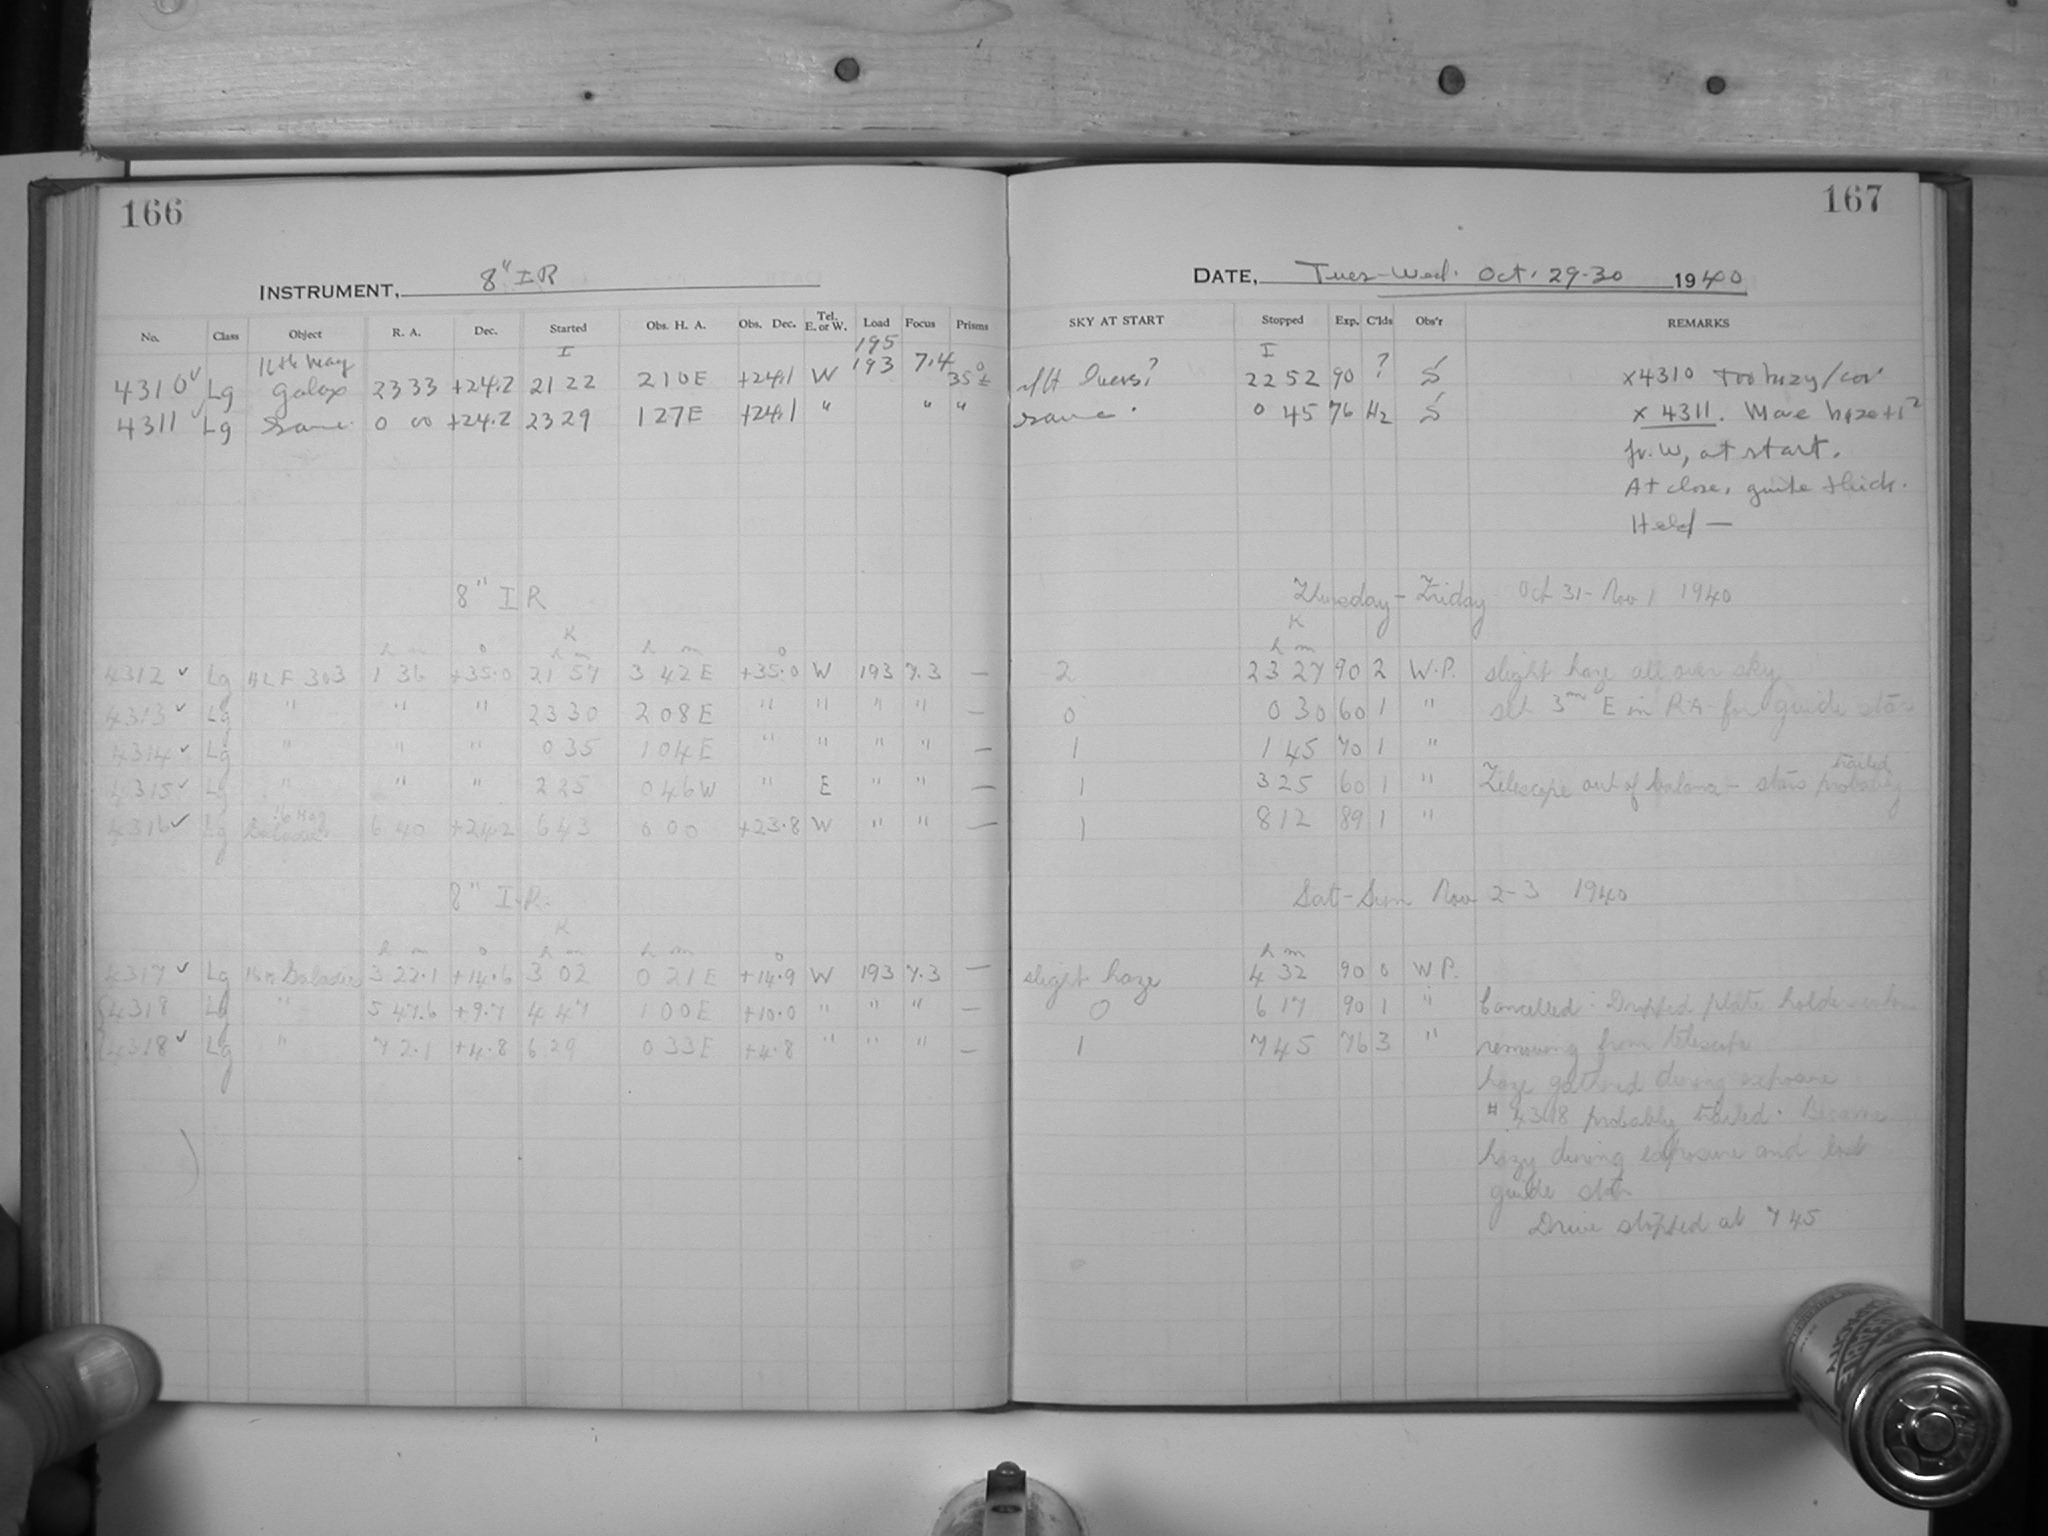 166
INSTRUMENT, 8" IR
No. Class Object R. A. Dec. Started Obs. H. A. Obs. Dec. Tel. E. or W. Load Focus Prisms
I 195
4310 ✓ Lg 16th Mag Galax 23 33 +24.2 21 22 2 10 E +24.1 W 193 7.4
4311 ✓ Lg Same 0 00 +24.2 23 29 1 27 E +24.1 " " "
8" I R
K
h m o h m h m o
4312 ✓ Lg 1 36 +35.0 21 57 3 42 E +35.0 W 193 7.3 —
4313 ✓ Lg " " " 23 30 2 08 E " " " " —
4314 ✓ Lg " " " 0 35 1 04 E " " " " —
4315 ✓ Lg " " " 2 25 0 46 W " E " " —
4316 ✓ Lg 16 Mag Galaxies 6 40 +24.2 6 43 0 00 +23.8 W " " —
8" I.R.
K
h m o h m h m o
4317 ✓ Lg 3 22.1 +14.6 3 02 0 21 E +14.9 W 193 7.3 —
4318 Lg " 5 47.6 +9.7 4 47 1 00 E +10.0 " " " —
4318 ✓ Lg " 7 2.1 +4.8 6 29 0 33 E +4.8 " " " —
167
DATE, Tues-Wed. Oct. 29-30 1940
SKY AT START Stopped Exp. C'lds Obs'r REMARKS
I
22 52 90 ? S x4310 Too hazy/
same. 0 45 76 H2 S x 4311. More haze
fr. W, at start.
At close, quite thick.
Held —
Thursday - Friday Oct 31 - Nov 1 1940
K
h m
2 23 27 90 2 W.P. slight haze all over sky
0 0 30 60 1 " set 3m E in R.A. for guide star
1 1 45 70 1 "
1 3 25 60 1 " Telescope out of balance - stars probably trailed
1 8 12 89 1 "
Sat-Sun Nov 2-3 1940
h m
slight haze 4 32 90 0 W P.
0 6 17 90 1 " Cancelled: Dropped plate holder when
1 7 45 76 3 " removing from telescope
haze gathered during exposure
# 4318 probably trailed. Became
hazy during exposure and lost
guide star
Drive stopped at 7 45